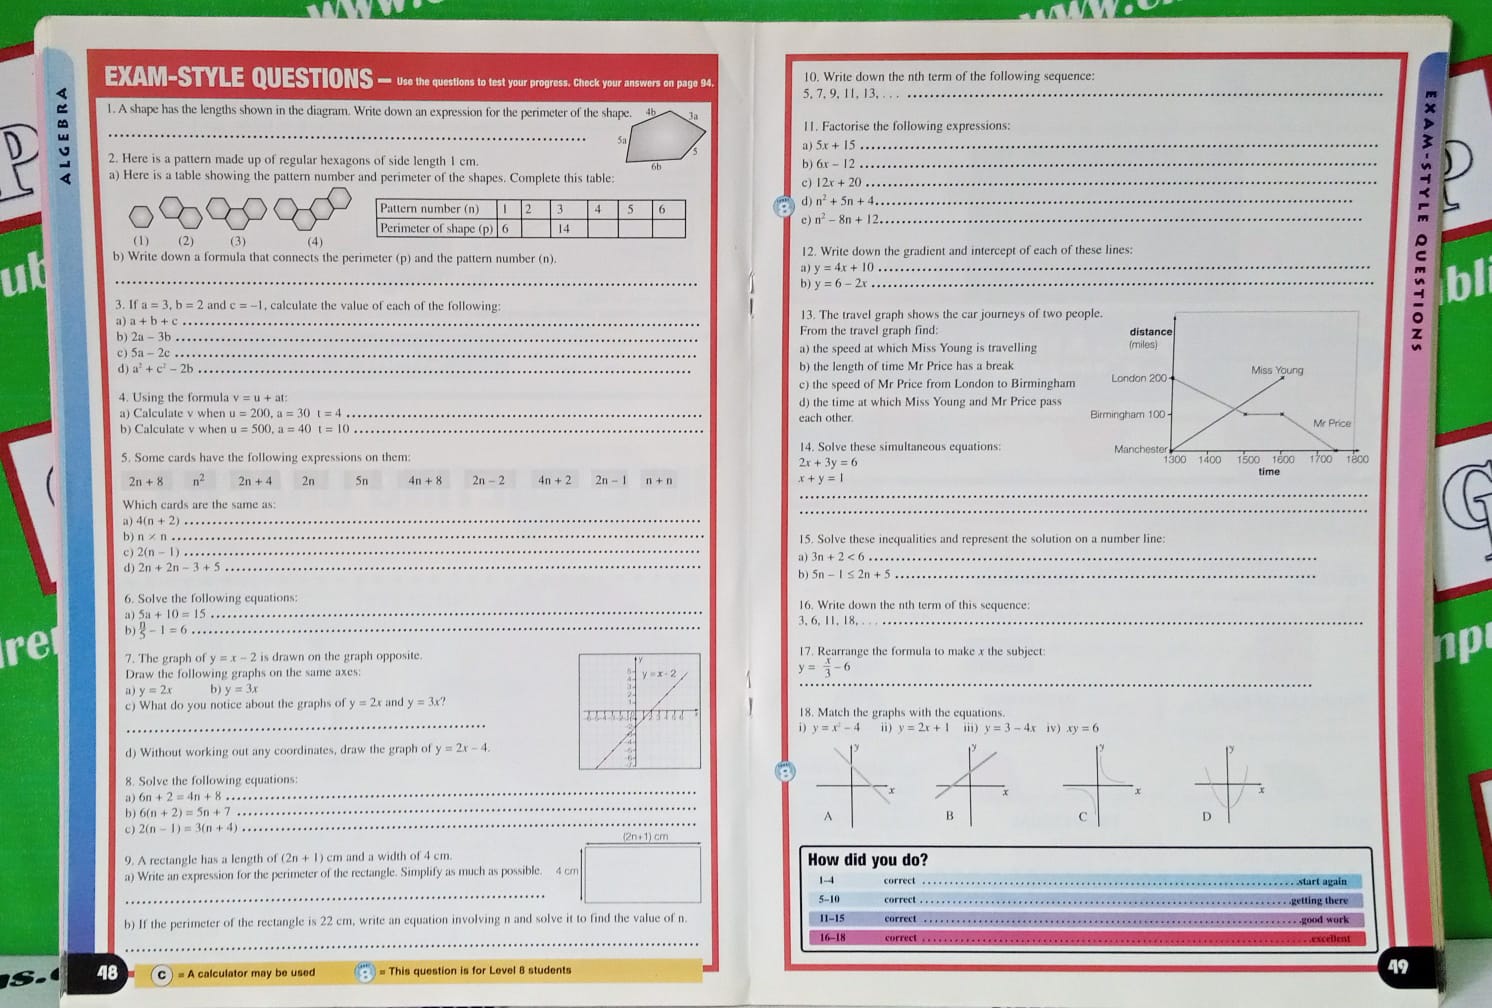 www.
www.
ALGEBRA
EXAM-STYLE QUESTIONS — Use the questions to test your progress. Check your answers on page 94.
1. A shape has the lengths shown in the diagram. Write down an expression for the perimeter of the shape.
4b
3a
5a
5
6b
2. Here is a pattern made up of regular hexagons of side length 1 cm.
a) Here is a table showing the pattern number and perimeter of the shapes. Complete this table:
(1) (2) (3) (4)
Pattern number (n) 1 2 3 4 5 6
Perimeter of shape (p) 6 14
b) Write down a formula that connects the perimeter (p) and the pattern number (n).
3. If a = 3, b = 2 and c = –1, calculate the value of each of the following:
a) a + b + c
b) 2a – 3b
c) 5a – 2c
d) a² + c² – 2b
4. Using the formula v = u + at:
a) Calculate v when u = 200, a = 30 t = 4
b) Calculate v when u = 500, a = 40 t = 10
5. Some cards have the following expressions on them:
2n + 8 n² 2n + 4 2n 5n 4n + 8 2n – 2 4n + 2 2n – 1 n + n
Which cards are the same as:
a) 4(n + 2)
b) n × n
c) 2(n – 1)
d) 2n + 2n – 3 + 5
6. Solve the following equations:
a) 5a + 10 = 15
b) n/5 – 1 = 6
7. The graph of y = x – 2 is drawn on the graph opposite.
Draw the following graphs on the same axes:
a) y = 2x b) y = 3x
c) What do you notice about the graphs of y = 2x and y = 3x?
d) Without working out any coordinates, draw the graph of y = 2x – 4.
y
y = x - 2
8. Solve the following equations:
a) 6n + 2 = 4n + 8
b) 6(n + 2) = 5n + 7
c) 2(n – 1) = 3(n + 4)
9. A rectangle has a length of (2n + 1) cm and a width of 4 cm.
a) Write an expression for the perimeter of the rectangle. Simplify as much as possible.
(2n+1) cm
4 cm
b) If the perimeter of the rectangle is 22 cm, write an equation involving n and solve it to find the value of n.
48
C = A calculator may be used
8 = This question is for Level 8 students
10. Write down the nth term of the following sequence:
5, 7, 9, 11, 13, . . .
11. Factorise the following expressions:
a) 5x + 15
b) 6x – 12
c) 12x + 20
8 d) n² + 5n + 4
e) n² – 8n + 12
12. Write down the gradient and intercept of each of these lines:
a) y = 4x + 10
b) y = 6 – 2x
13. The travel graph shows the car journeys of two people.
From the travel graph find:
a) the speed at which Miss Young is travelling
b) the length of time Mr Price has a break
c) the speed of Mr Price from London to Birmingham
d) the time at which Miss Young and Mr Price pass
each other.
distance
(miles)
London 200
Birmingham 100
Manchester
Miss Young
Mr Price
1300 1400 1500 1600 1700 1800
time
14. Solve these simultaneous equations:
2x + 3y = 6
x + y = 1
15. Solve these inequalities and represent the solution on a number line:
a) 3n + 2 < 6
b) 5n – 1 ≤ 2n + 5
16. Write down the nth term of this sequence:
3, 6, 11, 18, . . .
17. Rearrange the formula to make x the subject:
y = x/3 – 6
18. Match the graphs with the equations.
i) y = x² – 4 ii) y = 2x + 1 iii) y = 3 – 4x iv) xy = 6
8
y y y y
x x x x
A B C D
How did you do?
1–4 correct start again
5–10 correct getting there
11–15 correct good work
16–18 correct excellent
49
EXAM-STYLE QUESTIONS